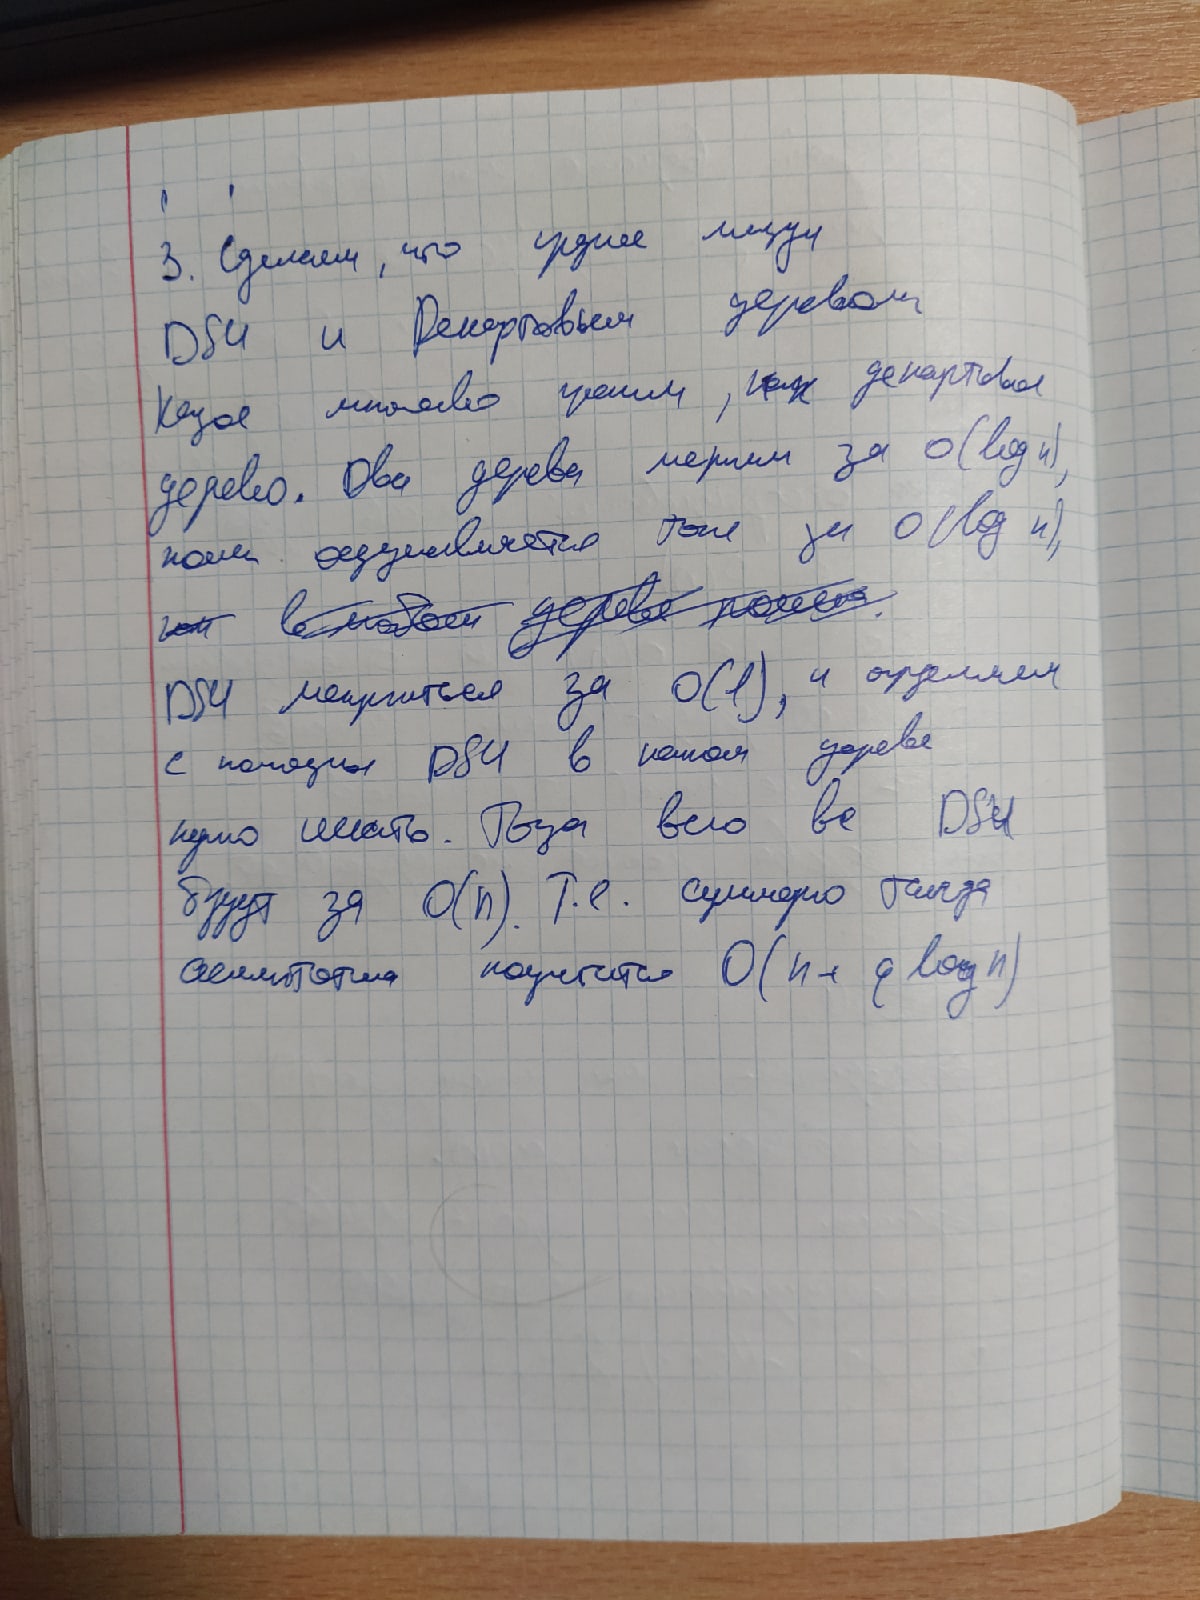 3. Сделаем, что среднее между
DSU и Декартовым деревом
Каждое множество храним, как декартовое
дерево. Два дерева мержим за O(log n),
поиск осуществляется тоже за O(log n),
DSU мержиться за O(1), и определяем
с помощью DSU в каком дереве
нужно искать. Тогда все DSU
будут за O(n). Т.е. суммарно тогда
асимптотика получится O(n + q log n)